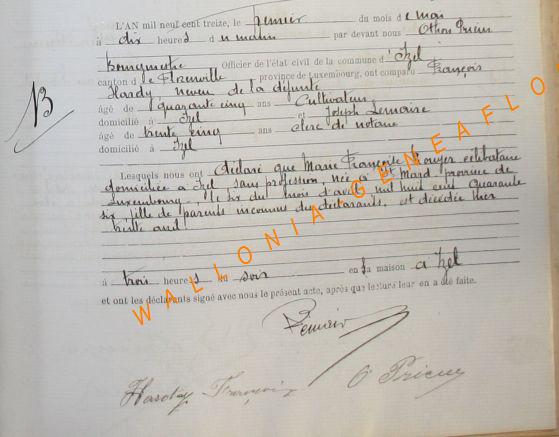 L'AN mil neuf cent treize, le premier du mois de mai
à dix heures du matin par devant nous Othon Prieur
Bourgmestre Officier de l'état civil de la commune d' Izel
canton de Florenville province de Luxembourg, ont comparu François
Hardy, neveu de la défunte
âgé de quarante cinq ans Cultivateur
domicilié à Izel et Joseph Lemaire
âgé de trente cinq ans clerc de notaire
domicilié à Izel
B
Lesquels nous ont déclaré que Marie Françoise célibataire
domiciliée à Izel sans profession, née à St Mard province de
Luxembourg, le six du mois d'avril mil huit cent quarante
six, fille de parents inconnus des déclarants, est décédée hier
trente avril
à trois heures du soir en sa maison à Izel
et ont les déclarants signé avec nous le présent acte, après que lecture leur en a été faite.
Hardy François O Prieur
WALLONIA-GENEAFLO